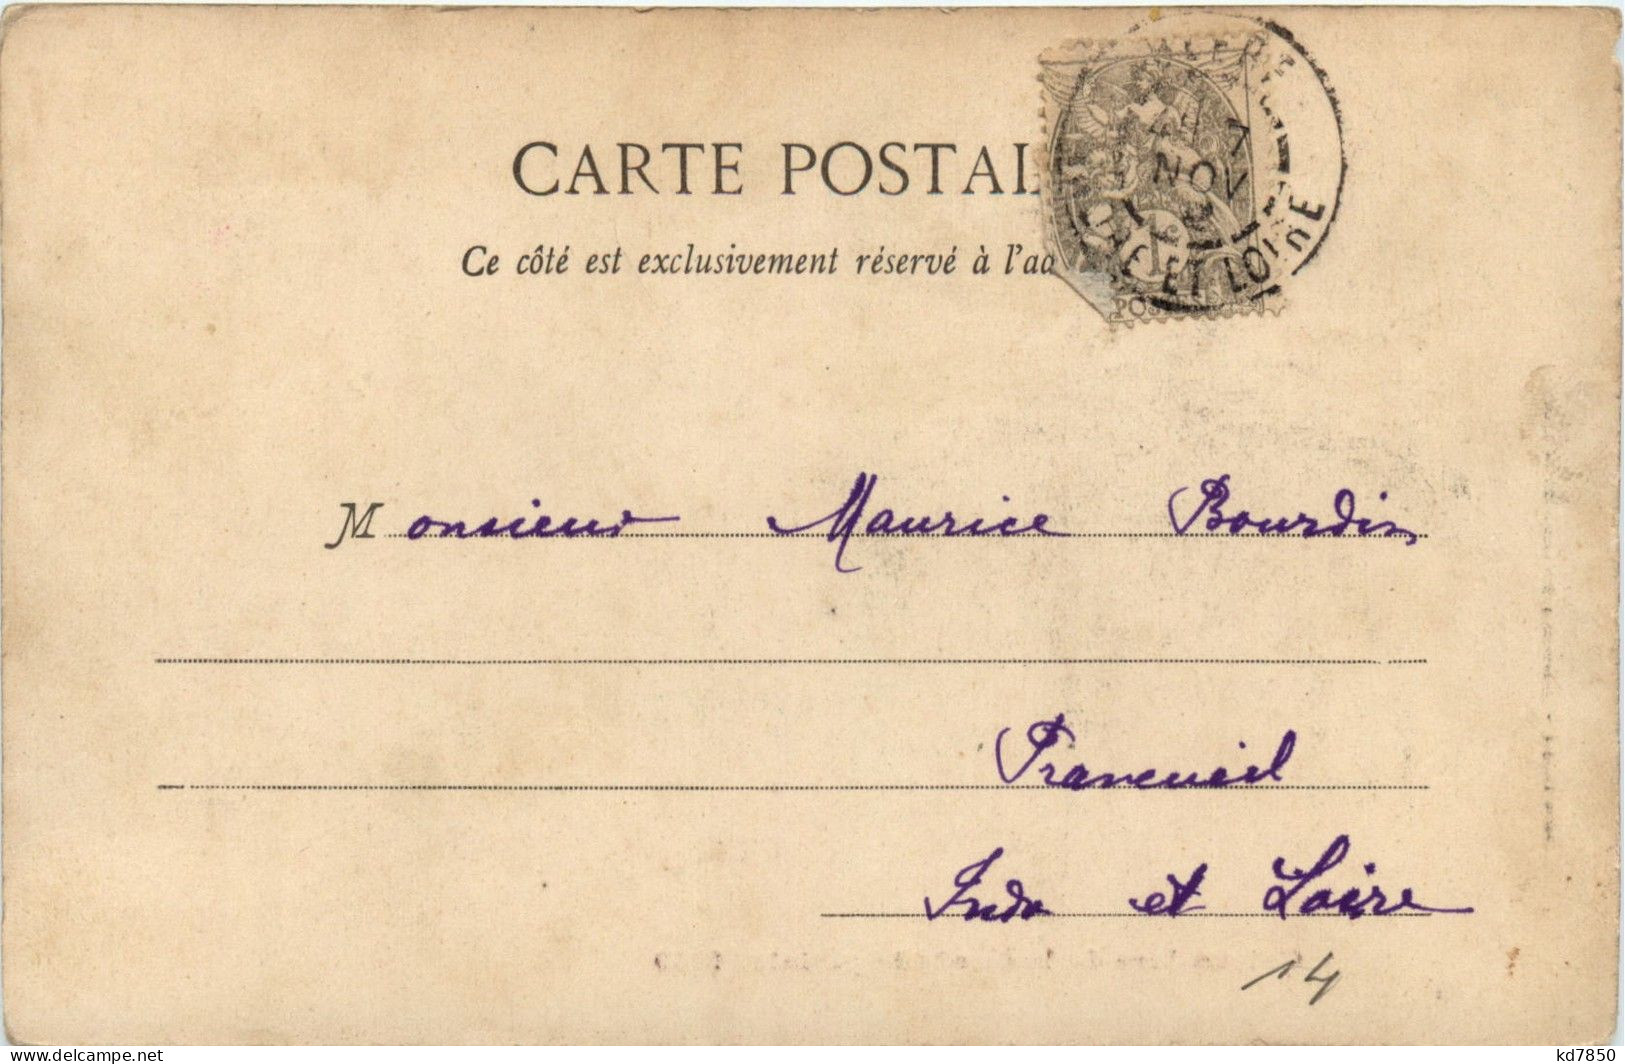 CARTE POSTAL
Ce côté est exclusivement réservé à l'ad
7
NOV
ET LOIRE
1
POS
Monsieur Maurice Bourdin
Francueil
Indre et Loire
14
www.delcampe.net
kd7850